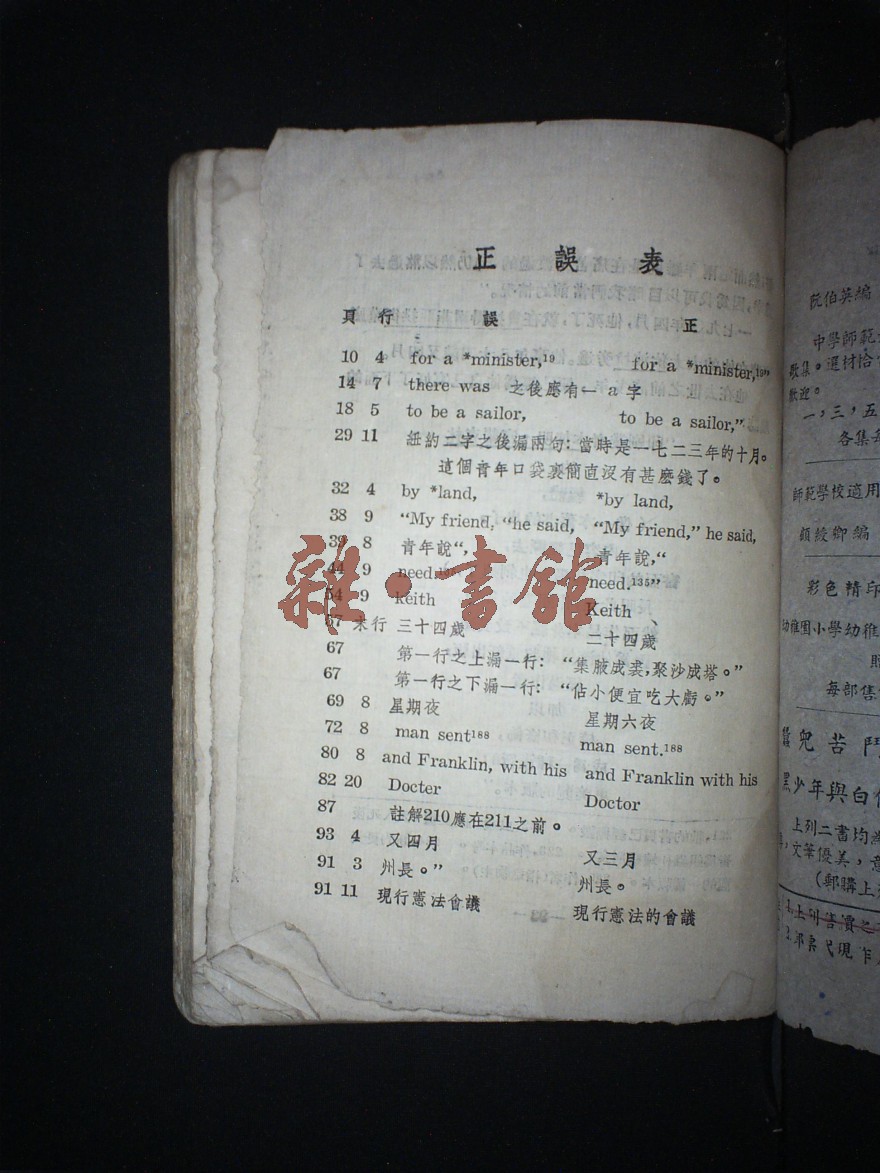 正誤表
頁 行 誤 正
10 4 for a *minister,¹⁹ for a *minister,¹⁹”
14 7 there was 之後應有一 a 字
18 5 to be a sailor, to be a sailor,”
29 11 紐約二字之後漏兩句：當時是一七二三年的十月。
這個青年口袋裏簡直沒有甚麽錢了。
32 4 by *land, *by land,
38 9 “My friend, “he said, “My friend,” he said,
39 8 青年說“, 青年說,“
44 9 need. need.¹³⁵”
54 9 keith Keith
57 末行 三十四歲 二十四歲
67 第一行之上漏一行：“集腋成裘，聚沙成塔。”
67 第一行之下漏一行：“佔小便宜吃大虧。”
69 8 星期夜 星期六夜
72 8 man sent¹⁸⁸ man sent.¹⁸⁸
80 8 and Franklin, with his and Franklin with his
82 20 Docter Doctor
87 註解210應在211之前。
93 4 又四月 又三月
91 3 州長。” 州長。
91 11 現行憲法會議 現行憲法的會議
雜·書館
阮伯英編
中學師範
歌集。選材恰
歡迎。
一，三，五
各集每
師範學校適用
顧綬卿編
彩色精印
幼稚園小學幼稚
每部售
兒苦鬥
黑少年與白
上列二書均為
文筆優美，意
（郵購上
1.上列售價之